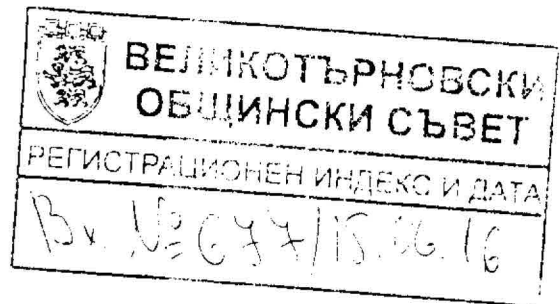 ВЕЛИКОТЪРНОВСКИ
ОБЩИНСКИ СЪВЕТ
РЕГИСТРАЦИОНЕН ИНДЕКС И ДАТА
Вх. № 677/15.06.16